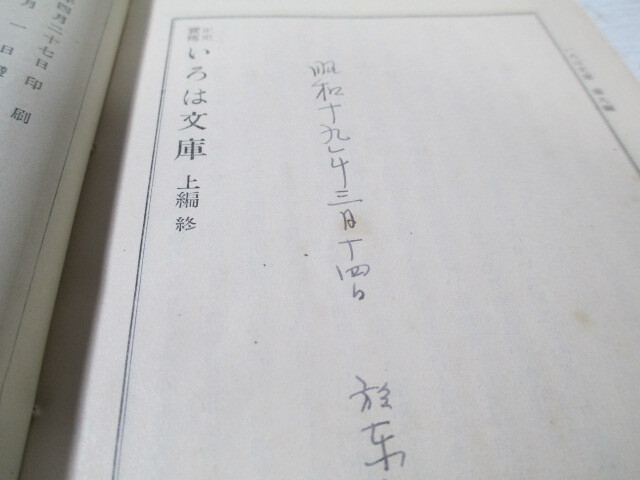 昭和十九年三月十四日 於東
正史實傳 いろは文庫 上編 終
四月二十七日印刷
月一日發